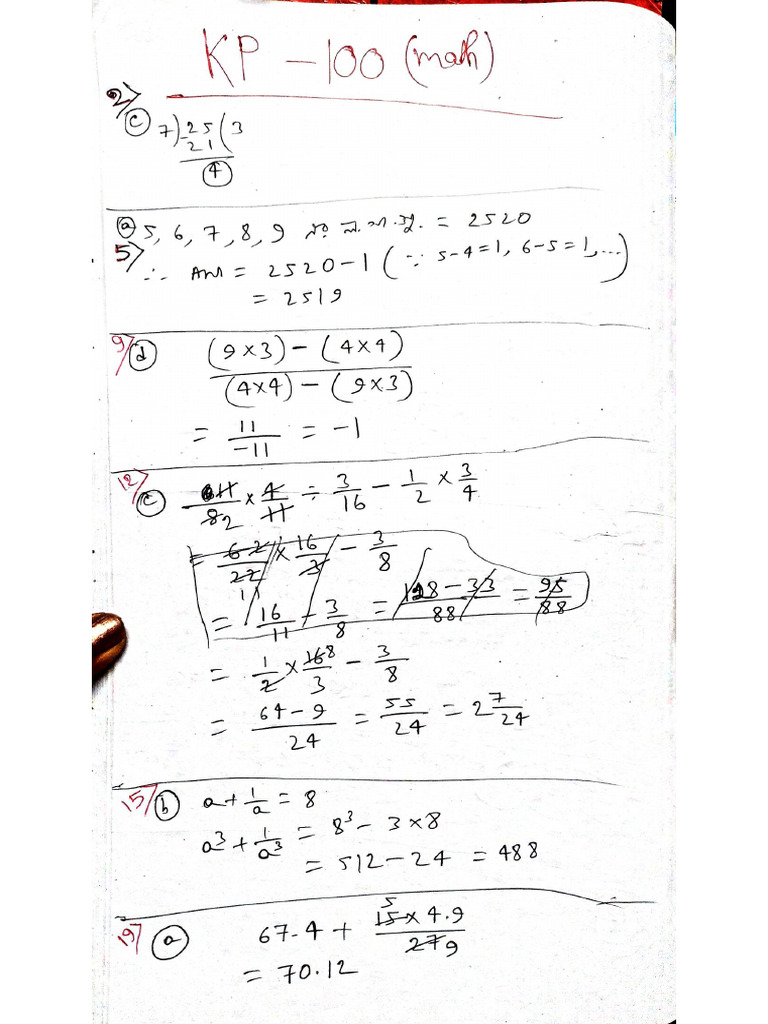 KP - 100 (math)
2)
(c) 7) 25 ( 3
21
4
(a) 5, 6, 7, 8, 9 এর ল.সা.গু. = 2520
5)
∴ Ans = 2520 - 1 ( ∵ 5-4=1, 6-5=1,...)
= 2519
9) (d) (9×3) - (4×4) / (4×4) - (9×3)
= 11/-11 = -1
12) (c) 11/82 × 4/11 ÷ 3/16 - 1/2 × 3/4
= 62/22 × 16/3 - 3/8
11
= 16/11 - 3/8 = 128-33/88 = 95/88
= 1/2 × 168/3 - 3/8
= 64-9/24 = 55/24 = 2 7/24
15) (b) a + 1/a = 8
a³ + 1/a³ = 8³ - 3×8
= 512 - 24 = 488
19) (a) 67.4 + 15 5 × 4.9 / 27 9
= 70.12